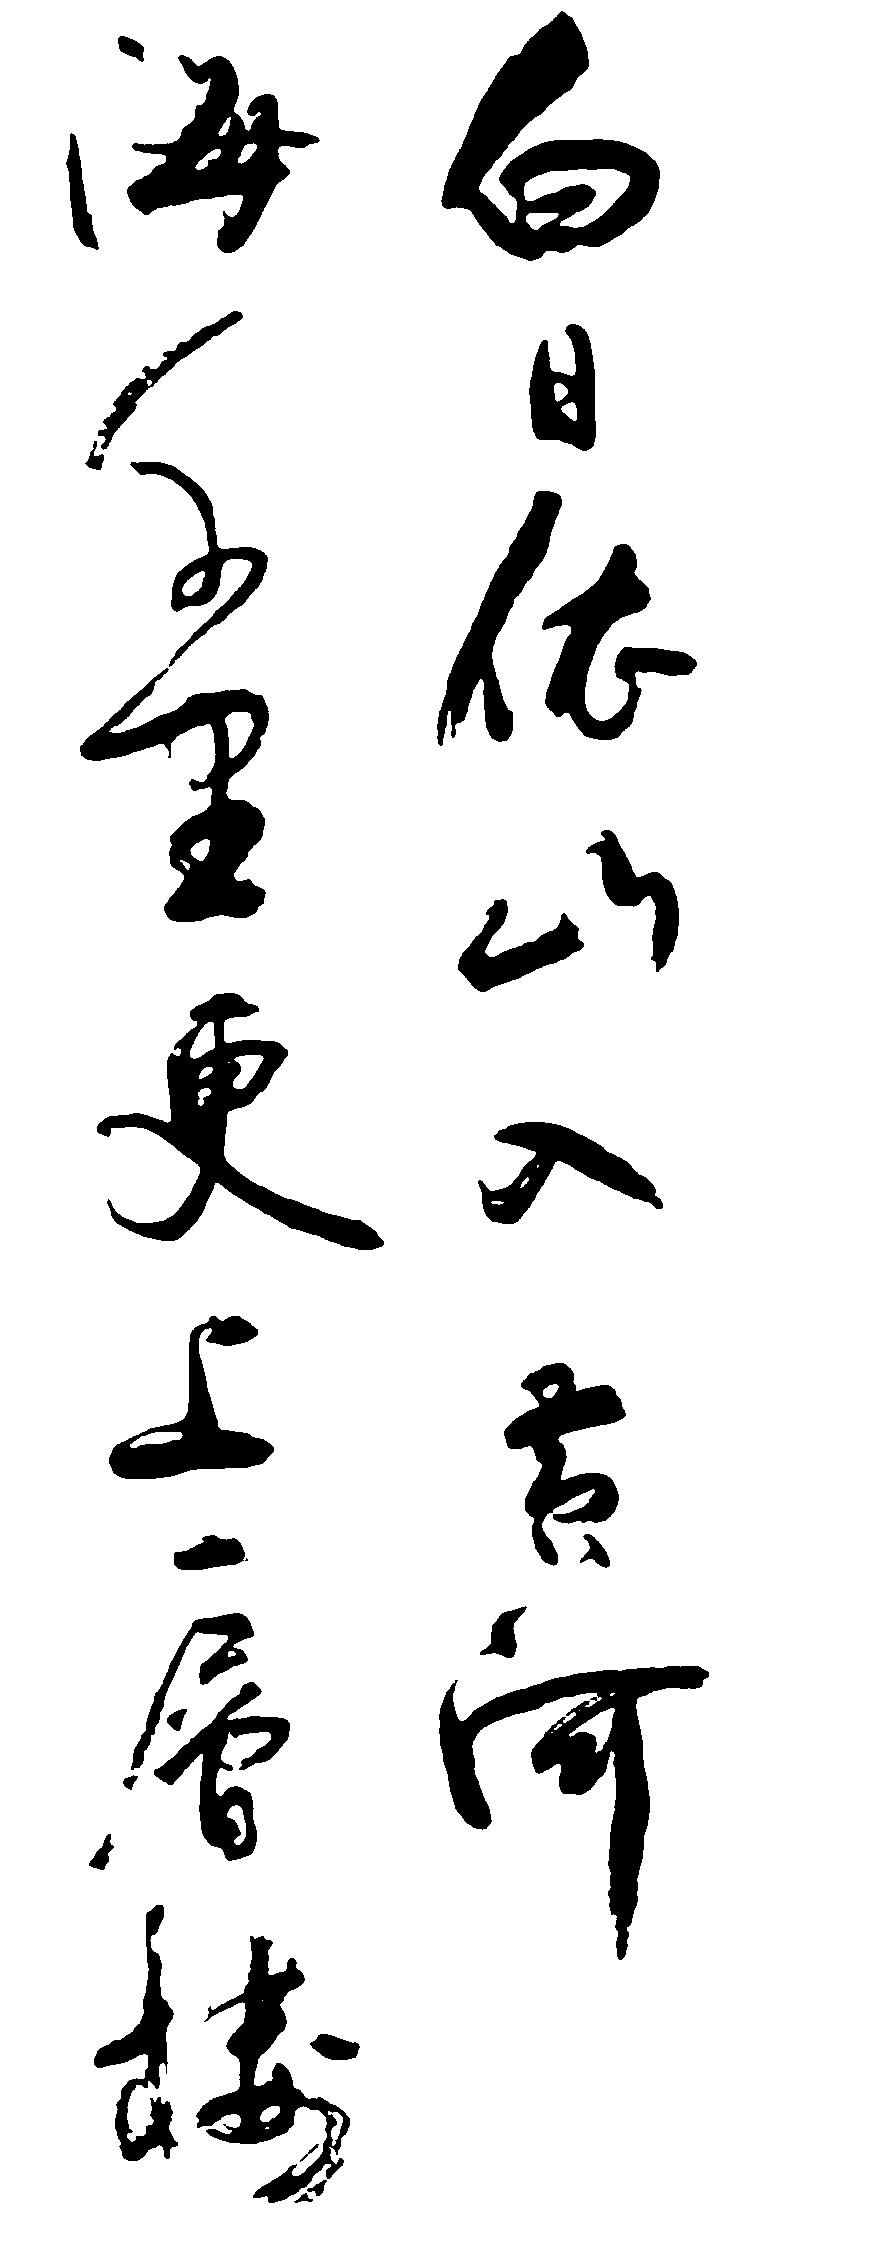 白日依山入黄河
海千里更上一層樓